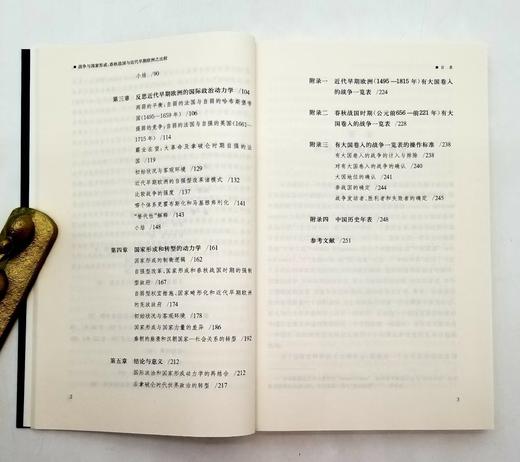 ■ 战争与国家形成：春秋战国与近代早期欧洲之比较
小结 /90
第三章 反思近代早期欧洲的国际政治动力学 /104
两弱的平衡：自弱的法国与自弱的哈布斯堡帝
国(1495—1659年) /106
弱者的竞争：自弱的法国与自强的英国(1661—
1715年) /114
霸业在望：大革命及拿破仑时期自强的法
国 /119
初始状况与客观环境 /129
近代早期欧洲的自强型改革诸模式 /132
比较战争的强度 /137
哪个体系更霍布斯化和马基雅弗利化 /141
“替代性”解释 /143
小结 /148
第四章 国家形成和转型的动力学 /161
国家形成的制衡逻辑 /162
自强型改革、国家形成和春秋战国时期的强制
型政府 /167
自弱型权宜措施、国家畸形化和近代早期欧洲
的宪政政府 /174
初始状况与客观环境 /178
国家形成与国家力量的差异 /186
秦朝的崩溃和汉朝国家—社会关系的转型 /192
第五章 结论与意义 /212
国际政治和国家形成动力学的再结合 /212
后拿破仑时代世界政治的转型 /217
2
■ 目录
附录一 近代早期欧洲(1495—1815年)有大国卷入
的战争一览表 /224
附录二 春秋战国时期(公元前656—前221年)有大
国卷入的战争一览表 /228
附录三 有大国卷入的战争一览表的操作标准 /238
有大国卷入的战争的计入与排除 /238
对有大国卷入的战争的确认 /240
大国地位的确认 /240
参战国的确定 /240
战争发动者、胜利者和失败者的确定 /245
附录四 中国历史年表 /248
参考文献 /251
3